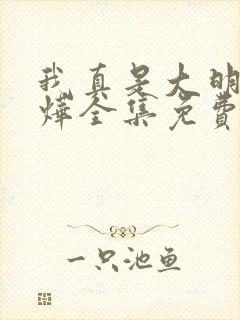 我真是大明
烨全集免费
一只池鱼